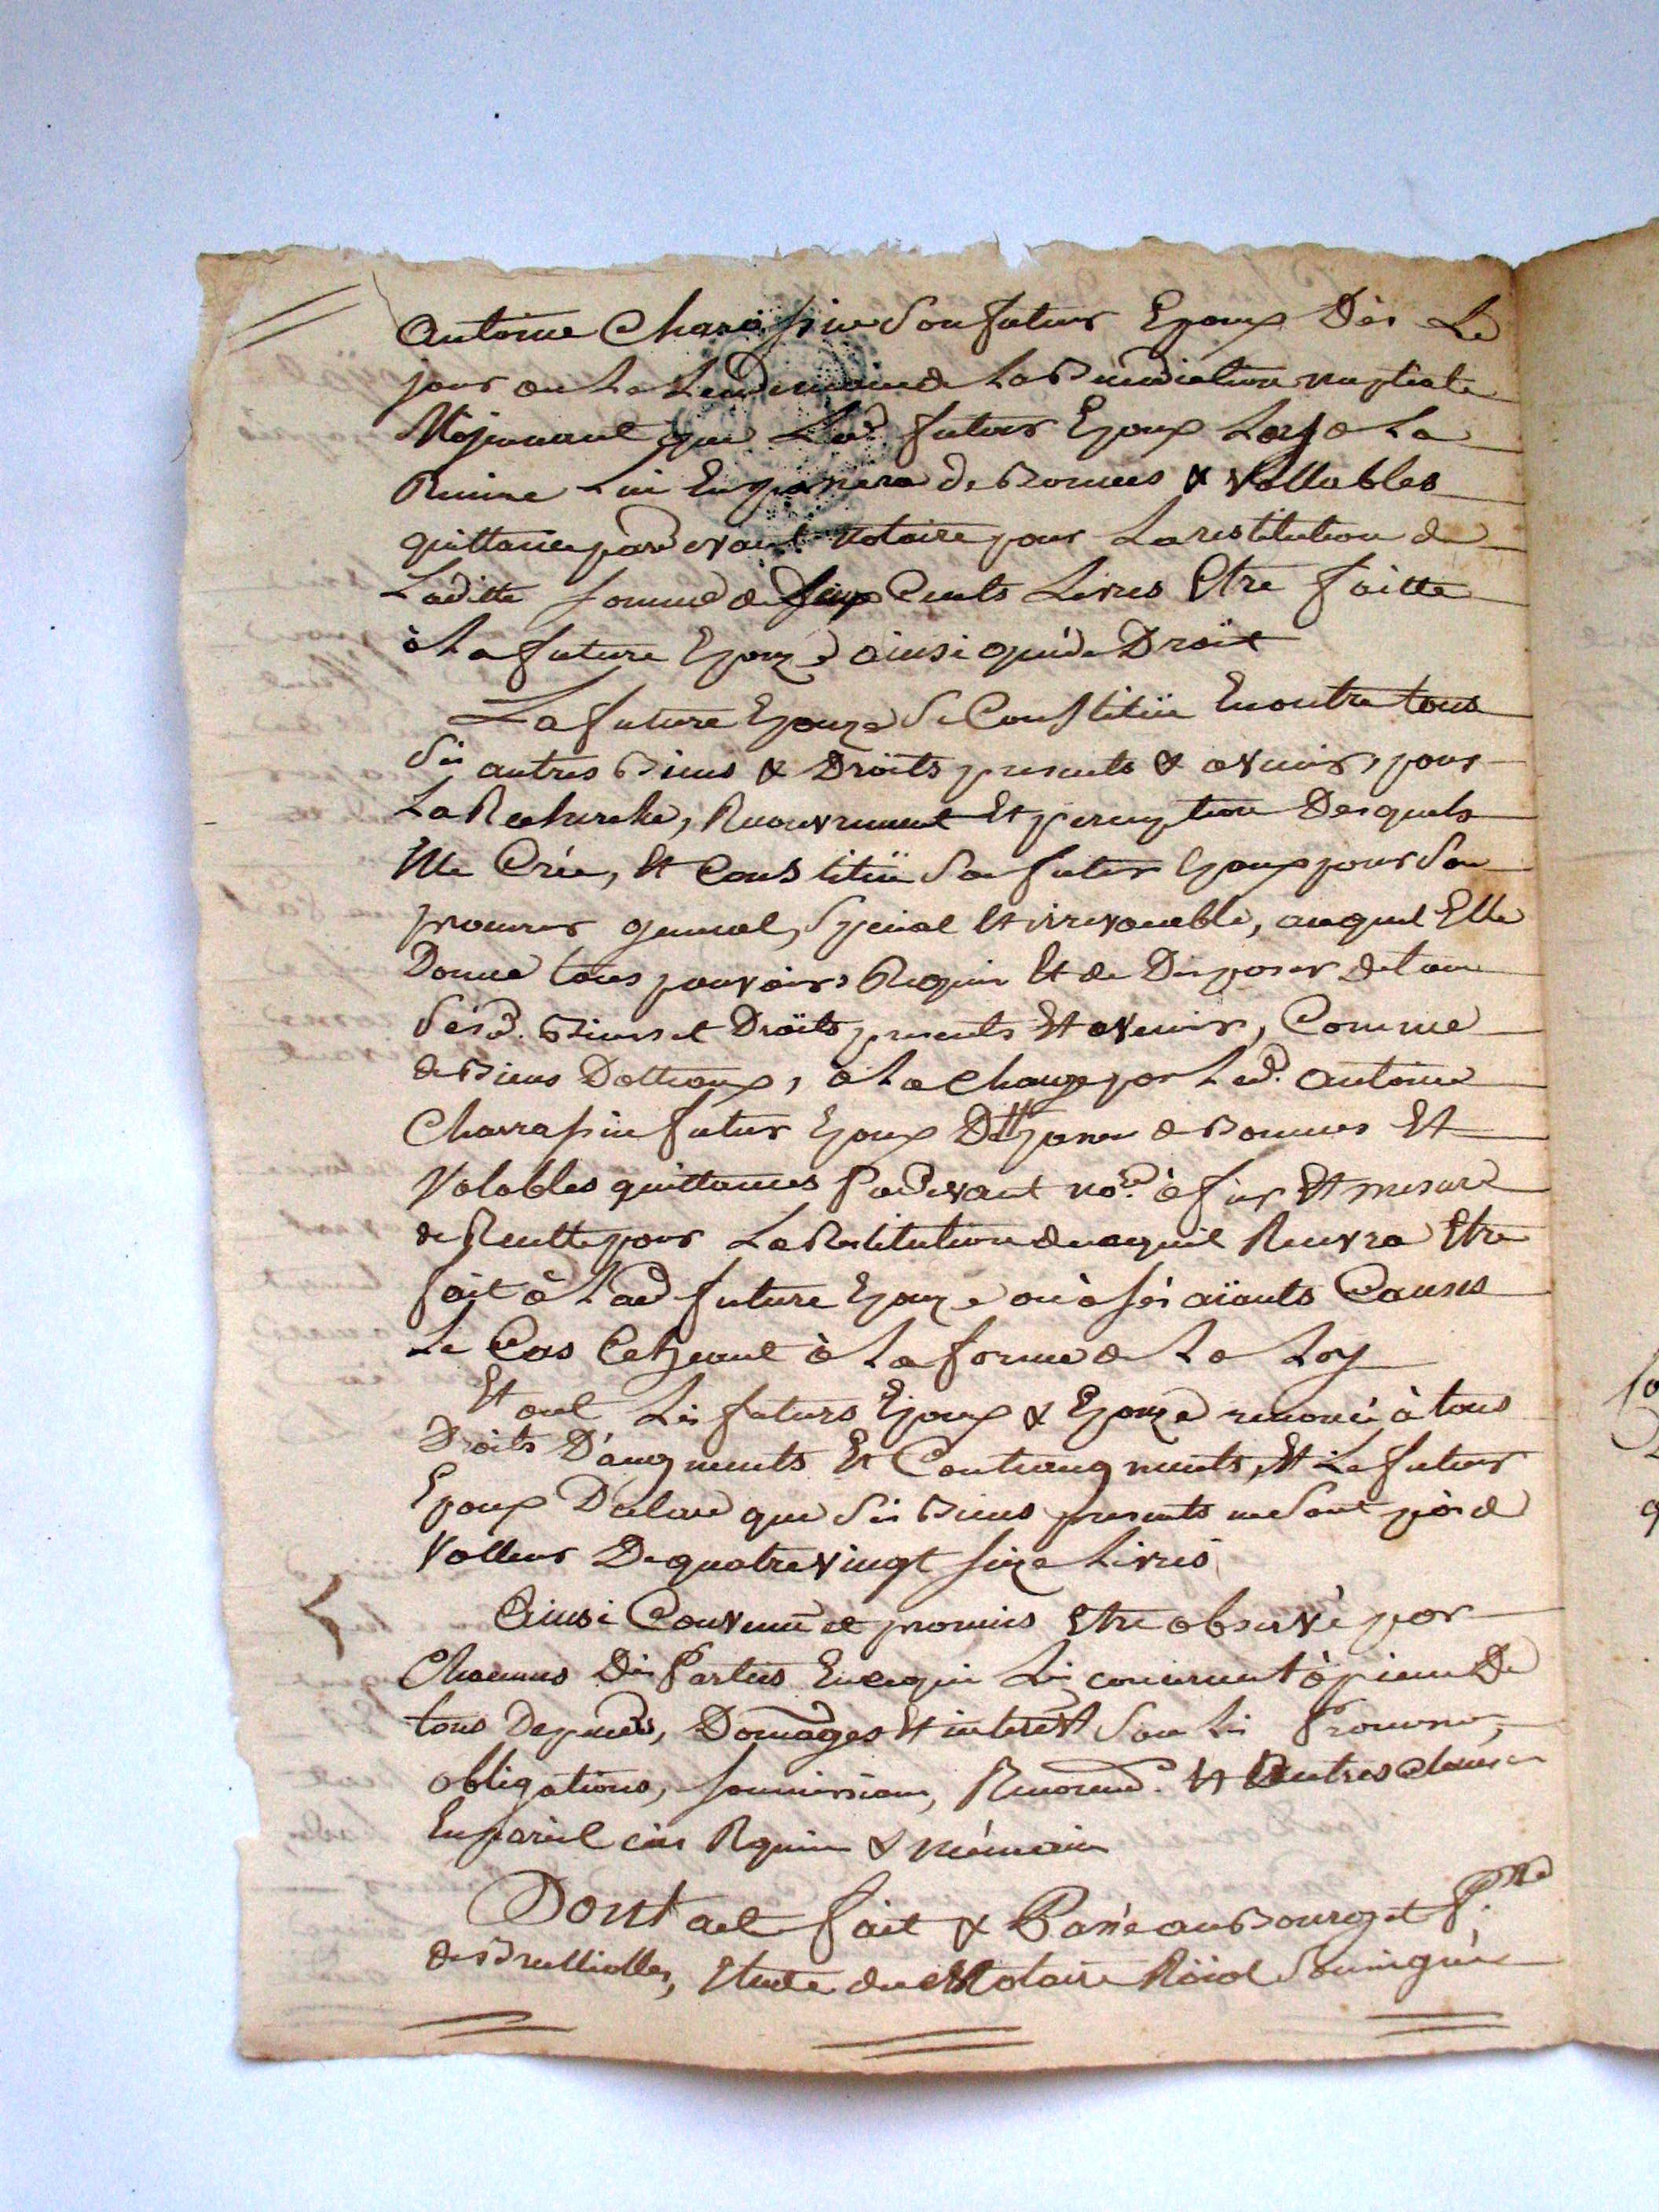 Antoine Charassin Son futur Epoux Dès Le
jour ou Le Lendemain de La Bénédiction nuptiale
Mojennant que Led. futur Epoux Lors de La
Remise Lui En passera de Bonnes & Vallables
quittances pardevant Notaire pour La restitution de
Laditte somme de Cents Livres Etre faitte
à La future Epouze ainsi que de Droit
La future Epouze Se Constitüe En outre tous
Ses autres Biens & Droits presents & avenirs, pour
La Recherche, Recouvrement Et perception Desquels
Elle Crée, Et Constitüe Son futur Epoux pour Son
procureur general, Special Et irrevocable, auquel Elle
Donne tous pouvoirs Requis Et de Disposer de tous
Sesd. Biens et Droits presents Et avenirs, Comme
de Biens Dottaux, a La Charge par Led. Antoine
Charrassin futur Epoux D'En passer de Bonnes Et
Valables quittances Pardevant No.re à fur Et mesure
de Recette pour La Restitution de ce qu'il Recevra Etre
fait à Lad future Epouze ou à sés aïants Causes
Le Cas Echeant à La forme de La Loy
Et ont Les futurs Epoux & Epouze renoncé à tous
Droits D'augments Et Contraugments, Et Le futur
Epoux Declare que Ses Biens presents ne Sont pas de
Valleur De quatre vingt seize Livres
Ainsi Convenu et promis Etre observé par
Chacunes Des Parties En ce qui Les concernent à peine De
tous Depends, Domages Et interêt Sou Les Promesses,
obligations, soumissions, Renonciaõns. Et Autres Clauses
En pareil cas Requises & Nécessaires
Dont acte fait & Passé au Bourg et P.sse
de Brullioles, Etude du Notaire Roïal Soussigné